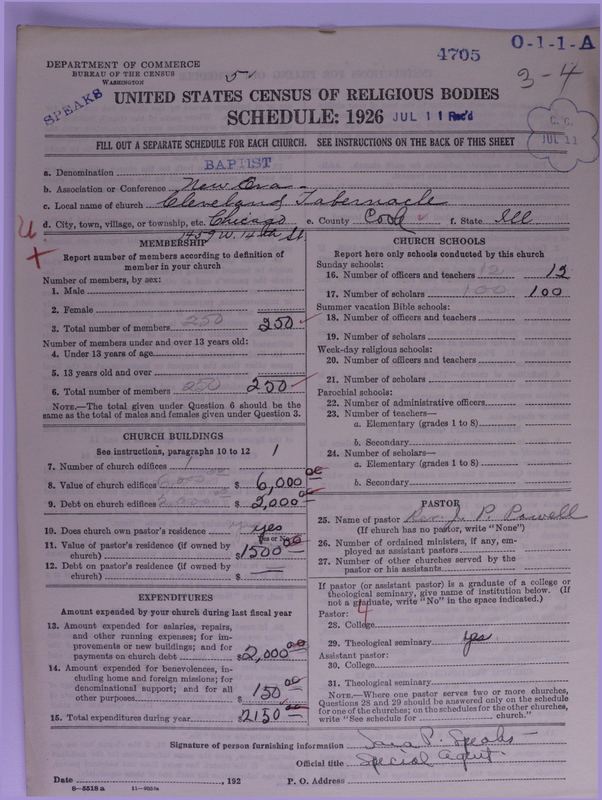 4705
0-1-1-A
DEPARTMENT OF COMMERCE
BUREAU OF THE CENSUS
WASHINGTON
3-4
SPEAKS
UNITED STATES CENSUS OF RELIGIOUS BODIES
SCHEDULE: 1926 JUL 11 Rec'd
C. C.
JUL 11
FILL OUT A SEPARATE SCHEDULE FOR EACH CHURCH. SEE INSTRUCTIONS ON THE BACK OF THIS SHEET
a. Denomination BAPTIST
b. Association or Conference New Era
c. Local name of church Cleveland Tabernacle
d. City, town, village, or township, etc. Chicago e. County Cook f. State Ill
1459 W. 14th St
MEMBERSHIP
Report number of members according to definition of
member in your church
Number of members, by sex:
1. Male
2. Female
3. Total number of members 250 250
Number of members under and over 13 years old:
4. Under 13 years of age
5. 13 years old and over
6. Total number of members 250 250
NOTE.—The total given under Question 6 should be the
same as the total of males and females given under Question 3.
CHURCH BUILDINGS
See instructions, paragraphs 10 to 12
7. Number of church edifices 1 1
8. Value of church edifices 6,000 $ 6,000 00
9. Debt on church edifices 2,000 $ 2,000 00
10. Does church own pastor's residence yes
(Yes or No)
11. Value of pastor's residence (if owned by
church) $ 1500 00
12. Debt on pastor's residence (if owned by
church) $ —
EXPENDITURES
Amount expended by your church during last fiscal year
13. Amount expended for salaries, repairs,
and other running expenses; for im-
provements or new buildings; and for
payments on church debt $ 2,000 00
14. Amount expended for benevolences, in-
cluding home and foreign missions; for
denominational support; and for all
other purposes $ 150 00
15. Total expenditures during year $ 2150 00
CHURCH SCHOOLS
Report here only schools conducted by this church
Sunday schools:
16. Number of officers and teachers 12 12
17. Number of scholars 100 100
Summer vacation Bible schools:
18. Number of officers and teachers
19. Number of scholars
Week-day religious schools:
20. Number of officers and teachers
21. Number of scholars
Parochial schools:
22. Number of administrative officers
23. Number of teachers—
a. Elementary (grades 1 to 8)
b. Secondary
24. Number of scholars—
a. Elementary (grades 1 to 8)
b. Secondary
PASTOR
25. Name of pastor Rev. J. P. Powell
(If church has no pastor, write "None")
26. Number of ordained ministers, if any, em-
ployed as assistant pastors
27. Number of other churches served by the
pastor or his assistants
If pastor (or assistant pastor) is a graduate of a college or
theological seminary, give name of institution below. (If
not a graduate, write "No" in the space indicated.)
Pastor: 4
28. College
29. Theological seminary yes
Assistant pastor:
30. College
31. Theological seminary
NOTE.—Where one pastor serves two or more churches,
Questions 28 and 29 should be answered only on the schedule
for one of the churches; on the schedules for the other churches,
write "See schedule for church."
Signature of person furnishing information P. Speaks
Official title Special Agent
Date , 192 P. O. Address
8—5518 a 11—9553a